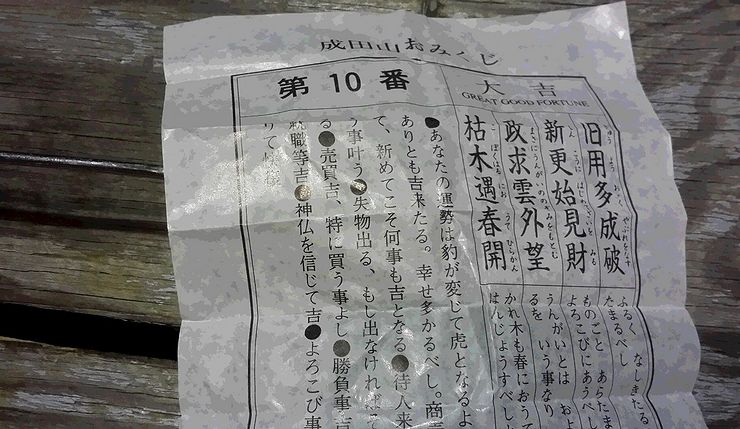 成田山おみくじ
第10番
大吉
GREAT GOOD FORTUNE
旧用多成破
新更始見財
政求雲外望
枯木遇春開
ふるく なしきたる
たまるべし
ものごと あらたま
よろこびにあうべし
うんがいとは およ
るを いう事なり
かれ木も春におうて
はんじょうすべし
●あなたの運勢は豹が変じて虎となるよ
ありとも吉来たる。幸せ多かるべし。商売
て、新めてこそ何事も吉となる●待人来
う事叶う●失物出る、もし出なければ
る●売買吉、特に買う事よし●勝負事
就職等吉●神仏を信じて吉●よろこび事